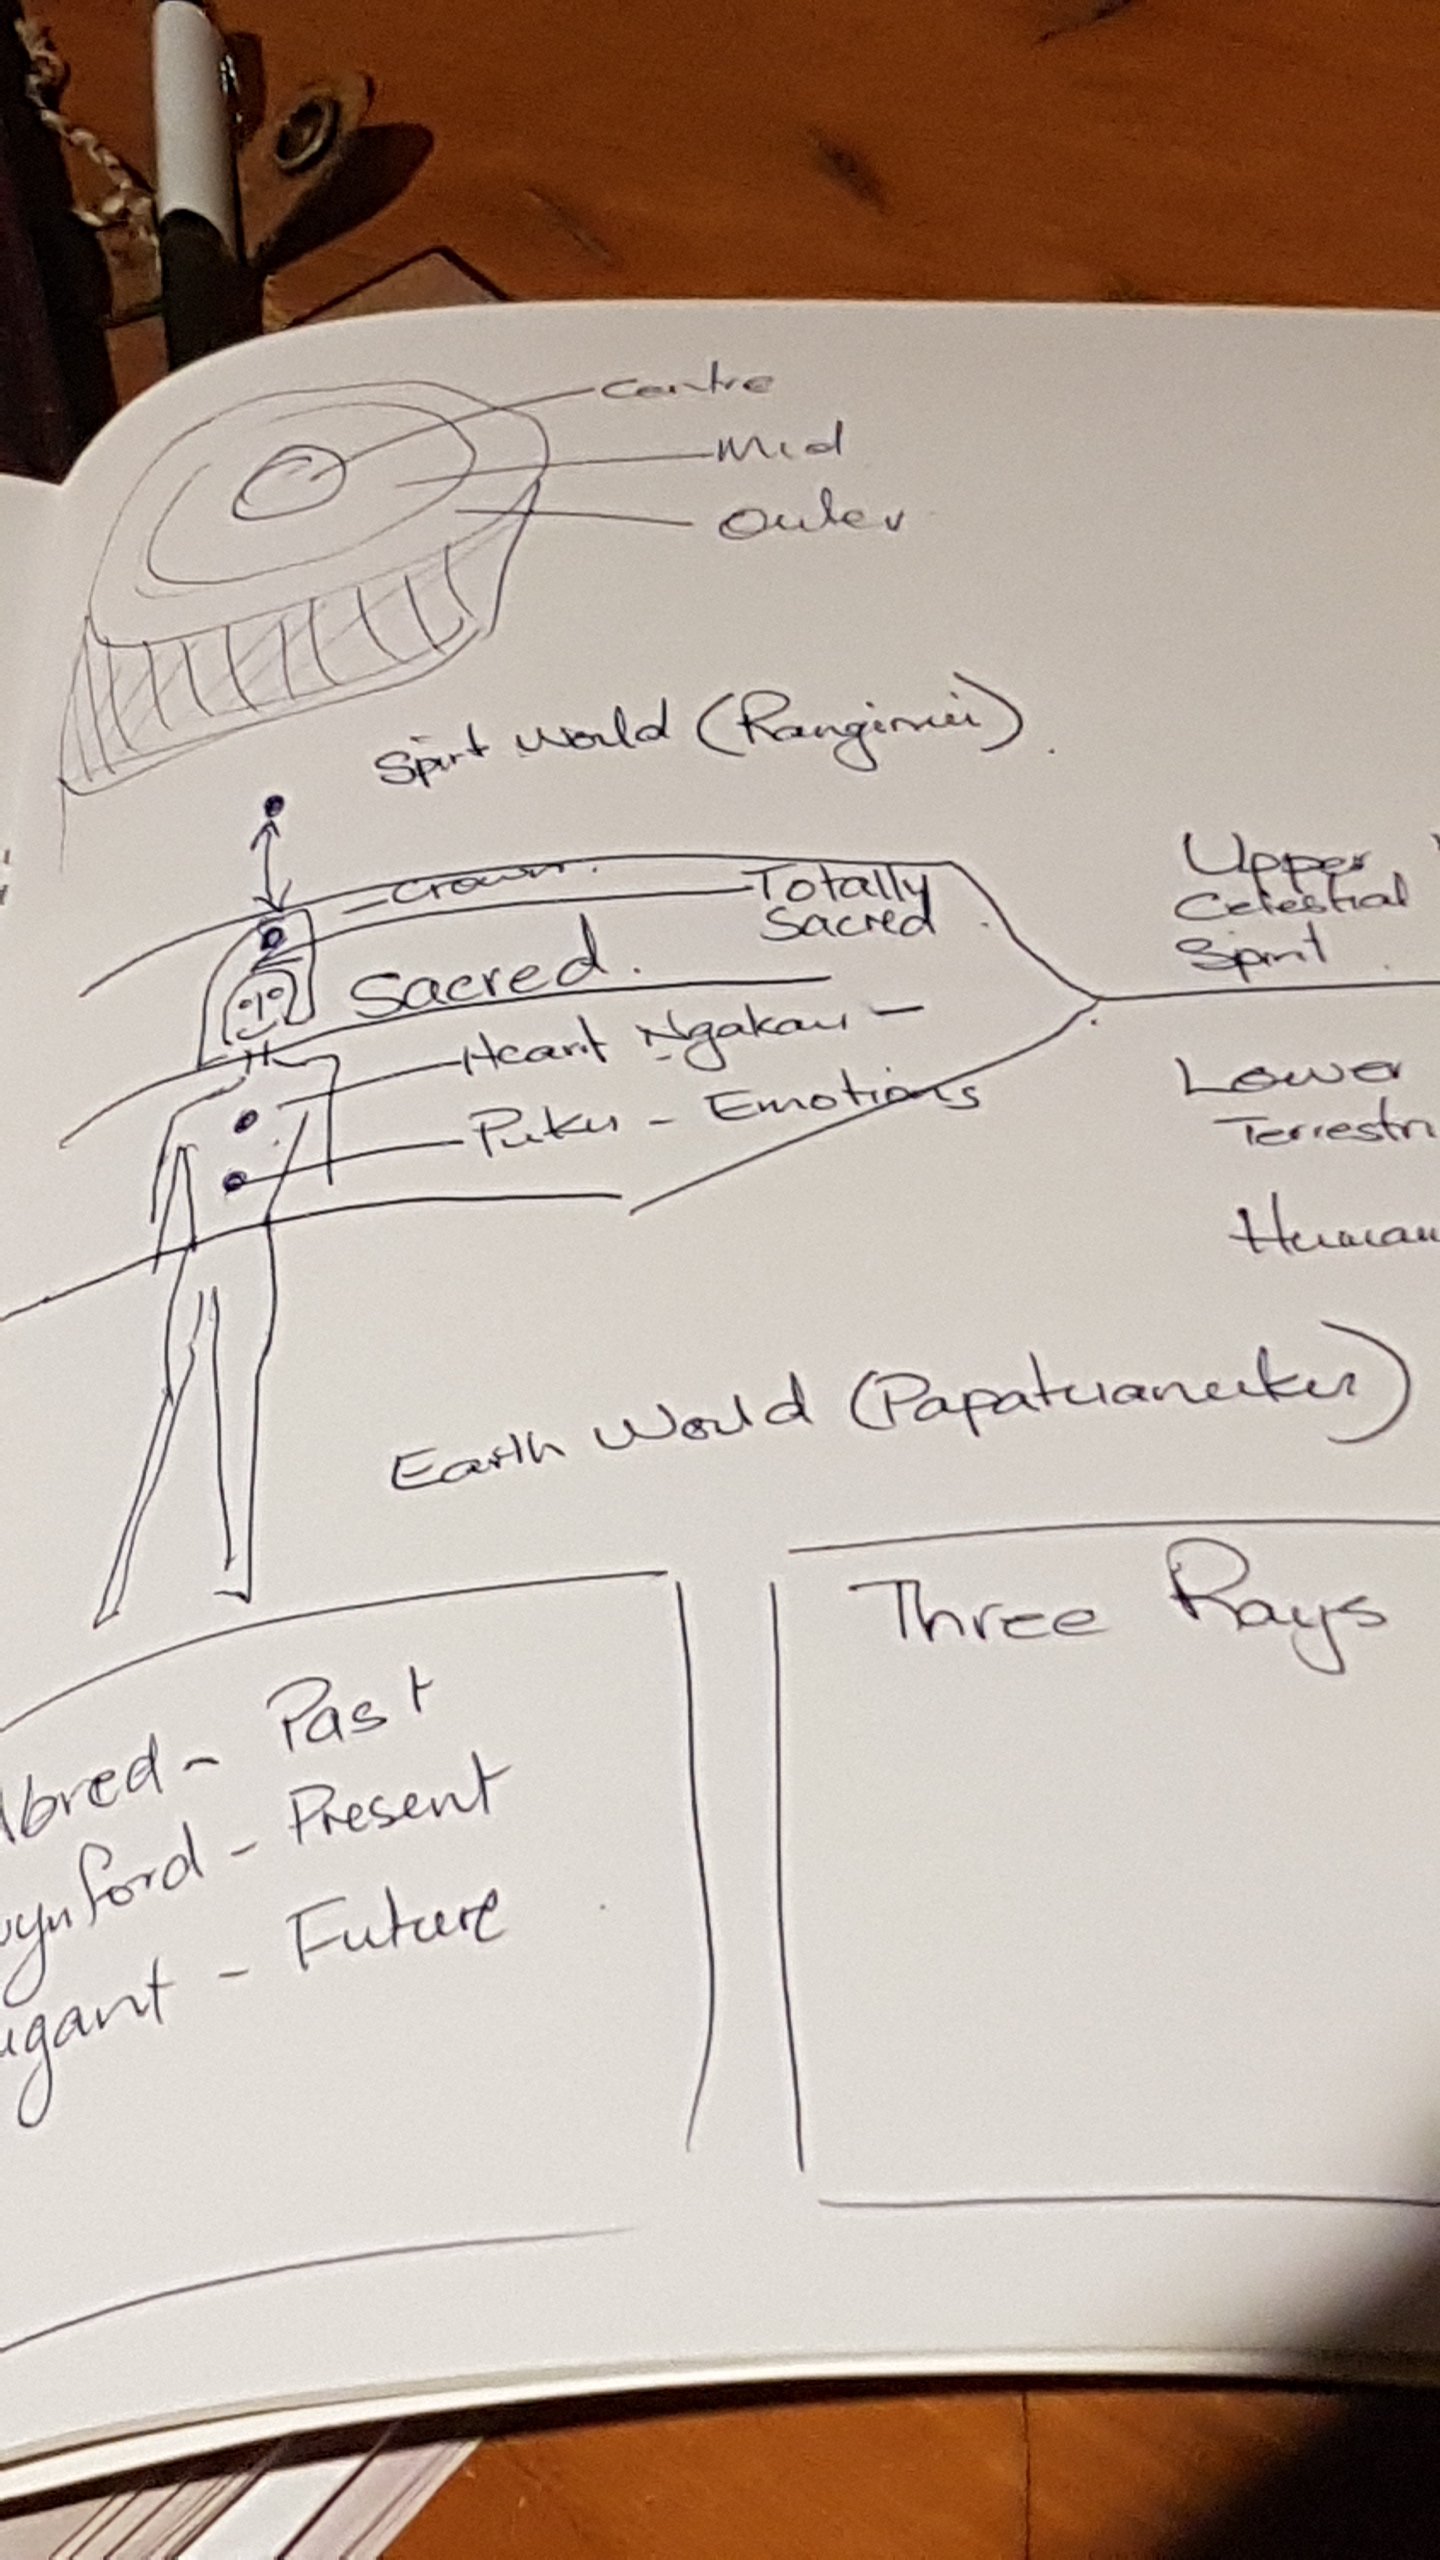 Centre
Mid
Outer
Spirit World (Ranginui).
Crown.
Totally
Sacred
Sacred.
Heart Ngakau -
Puku - Emotions
Upper
Celestial
Spirit
Lower
Terrestri
Human
Earth World (Papatuanuku)
Three Rays
Abred - Past
wynford - Present
ugant - Future